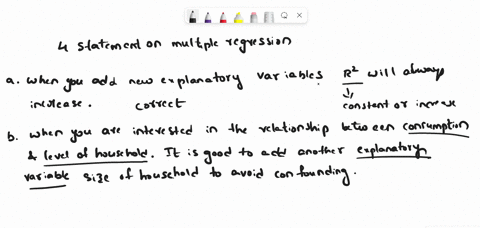 4 statement on multiple regression
a. when you add new explanatory variables R² will always
increase. correct
↓
constant or increase
b. when you are interested in the relationship between consumption
& level of household. It is good to add another explanatory
variable size of household to avoid confounding.